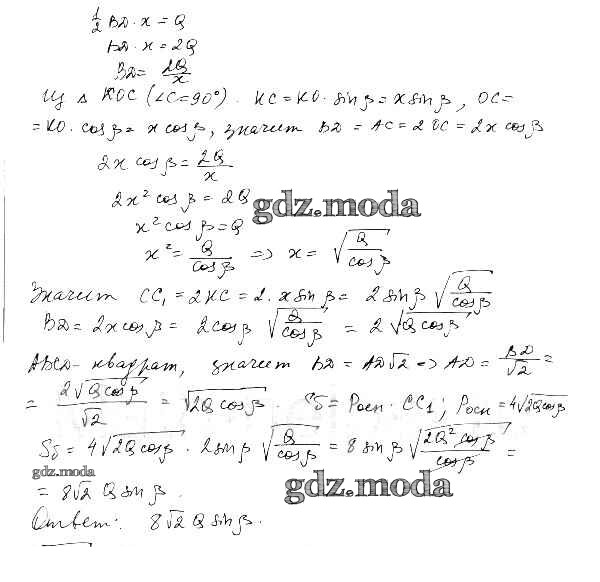 1/2 BD · x = Q
BD · x = 2Q
BD = 2Q/x
Из Δ KOC (∠C=90°). KC = KO · sin β = x sin β, OC =
= KO · cos β = x cos β, значит BD = AC = 2 OC = 2x cos β
2x cos β = 2Q/x
2x² cos β = 2Q
x² cos β = Q
gdz.moda
x² = Q/cos β => x = √(Q/cos β)
Значит CC₁ = 2KC = 2 · x sin β = 2 sin β √(Q/cos β)
BD = 2x cos β = 2cos β √(Q/cos β) = 2√(Q cos β)
ABCD - квадрат, значит BD = AD√2 => AD = BD/√2 =
= 2√(Q cos β)/√2 = √(2Q cos β). Sб = Pосн · CC₁; Pосн = 4√(2Q cos β)
Sб = 4√(2Q cos β) · 2 sin β √(Q/cos β) = 8 sin β √(2Q² cos β/cos β) =
gdz.moda
= 8√2 Q sin β.
gdz.moda
Ответ: 8√2 Q sin β.